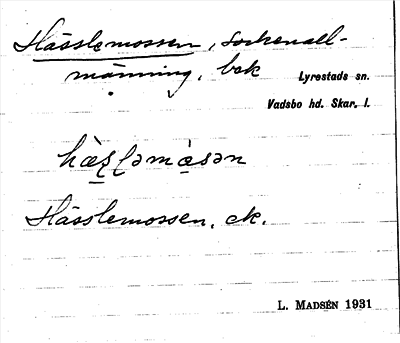 Hässlemossen, sockenall-
männing, bek
Lyrestads sn.
Vadsbo hd. Skar. l.
hæʂləmåsən
Hässlemossen, ek.
L. MADSÉN 1931